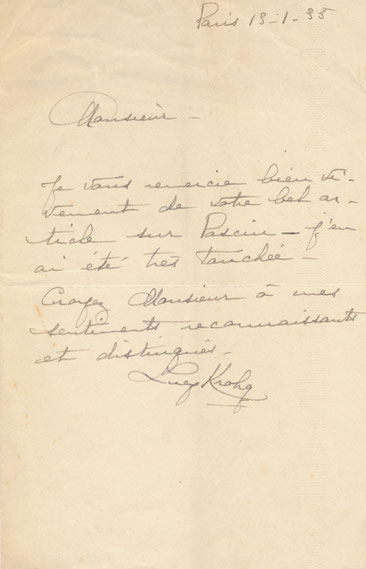 Paris 13-1-35
Monsieur -
Je vous remercie bien vi-
vement de votre bel ar-
ticle sur Pascin - j'en
ai été très touchée -
Croyez Monsieur à mes
sentiments reconnaissants
et distingués -
Lucy Krohg